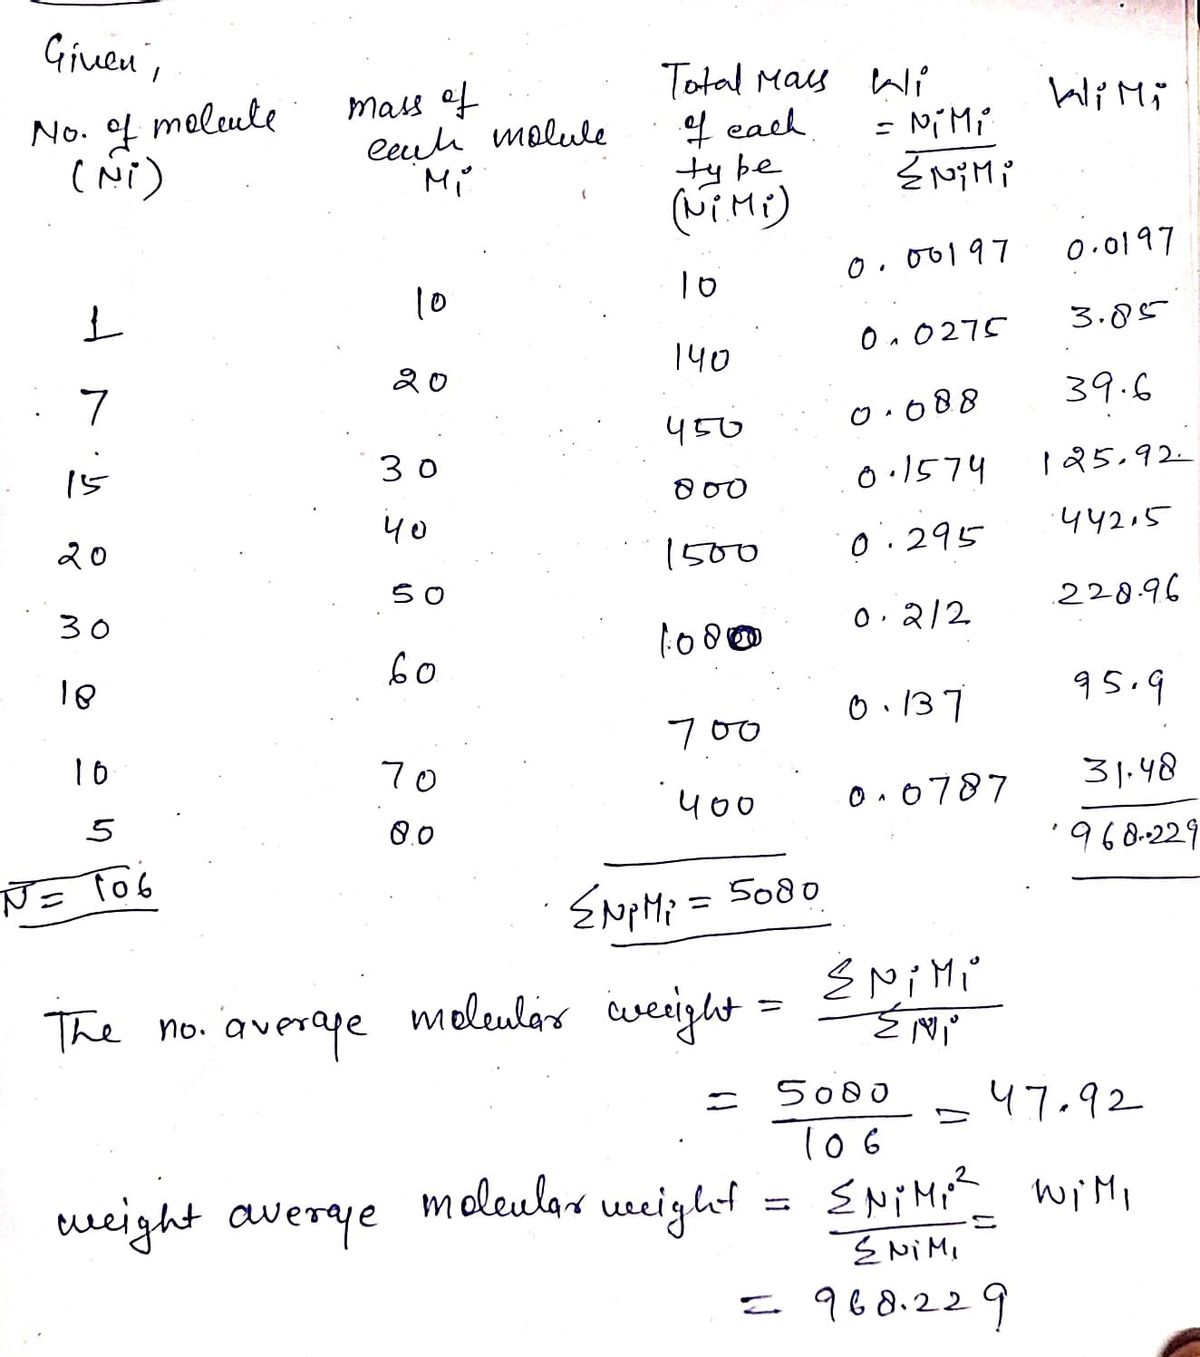 Given,
No. of molecule (Ni) mass of each molule Mi Total Mass of each type (NiMi) Wi = NiMi / ΣNiMi WiMi
1 10 10 0.00197 0.0197
7 20 140 0.0275 3.85
15 30 450 0.088 39.6
20 40 800 0.1574 125.92
30 50 1500 0.295 442.5
18 60 1080 0.212 228.96
10 70 700 0.137 95.9
5 80 400 0.0787 31.48
N = 106 ΣNiMi = 5080 968.229
The no. average molecular weight = ΣNiMi / ΣNi
= 5080 / 106 = 47.92
weight average molecular weight = ΣNiMi² / ΣNiMi = WiMi
= 968.229